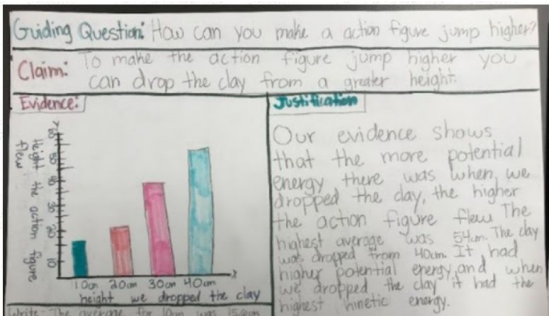 Guiding Question: How can you make a action figure jump higher?
Claim: To make the action figure jump higher you
can drop the clay from a greater height.
Evidence:
Height the action figure
flew
10cm 20cm 30cm 40cm
height we dropped the clay
Write: The average for 10cm was
Justification
Our evidence shows
that the more potential
energy there was when we
dropped the clay, the higher
the action figure flew. The
highest average was 54cm. The clay
was dropped from 40cm. It had
higher potential energy, and when
we dropped the clay it had the
highest kinetic energy.